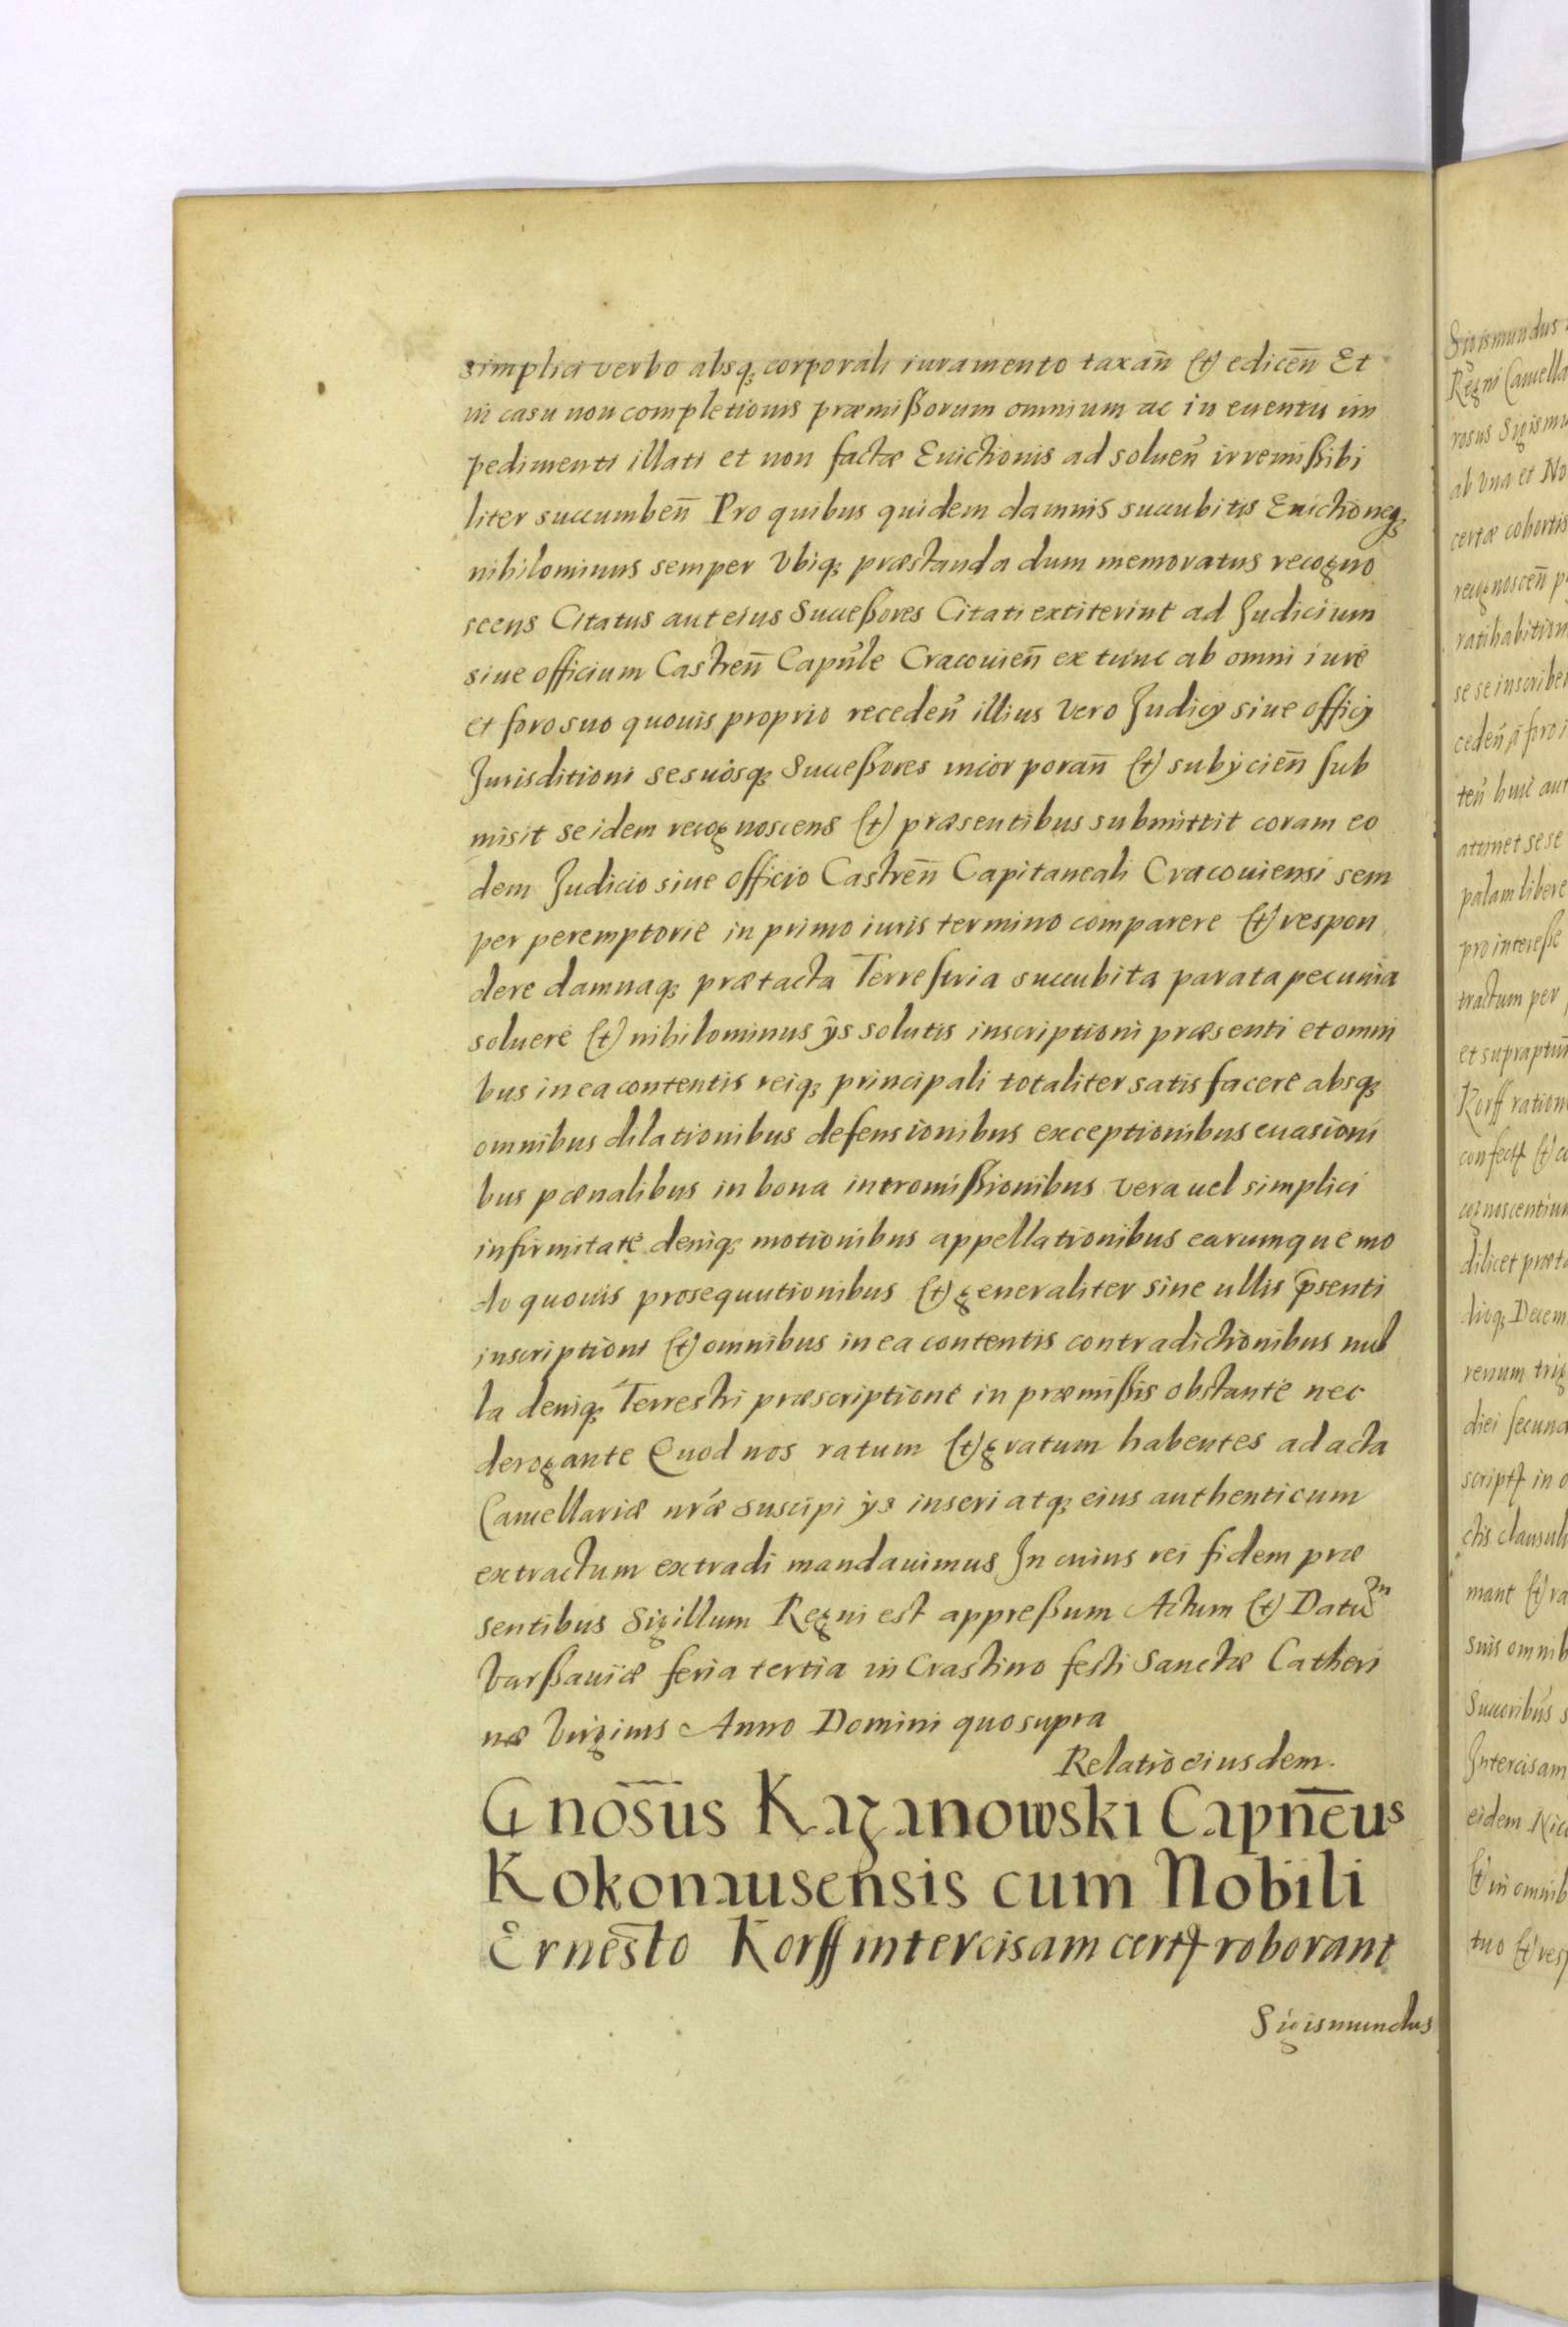 simplici verbo absq; corporali iuramento taxan̄ (t) edicen̄ Et
in casu non completionis præmißorum omnium ac in euentu im
pedimenti illati et non factæ Euictionis ad soluen̄ irremißibi
liter succumben̄ Pro quibus quidem damnis succubitis Euictioneq;
nihilominus semper Vbiq; præstanda dum memoratus recogno
scens Citatus aut eius Succeßores Citati extiterint ad Judicium
siue officium Castren̄ Capn̄le Cracouien̄ ex tunc ab omni iure
et foro suo quouis proprio receden̄ illius Vero Judicÿ siue officÿ
Jurisditioni se suosq; Succeßores incorporan̄ (t) subÿcien̄ sub
misit se idem recognoscens (t) præsentibus submittit coram eo
dem Judicio siue officio Castren̄ Capitaneali Cracouiensi sem
per peremptorie in primo iuris termino comparere (t) respon
dere damnaq; prætacta Terrestria succubita parata pecunia
soluere (t) nihilominus ÿs solutis inscriptioni præsenti et omni
bus in ea contentis reiq; principali totaliter satisfacere absq;
omnibus dilationibus defensionibus exceptionibus euasioni
bus pœnalibus in bona intromißionibus vera uel simplici
infirmitate deniq; motionibus appellationibus earumque mo
do quouis prosequutionibus (t) generaliter sine ullis p̄senti
inscriptioni (t) omnibus in ea contentis contradictionibus nul
la deniq; Terrestri præscriptione in præmißis obstante nec
derogante Quod nos ratum (t) gratum habentes ad acta
Cancellariæ nr̄æ suscipi ÿs inseri atq; eius authenticum
extractum extradi mandauimus In cuius rei fidem præ
sentibus Sigillum Regni est appreßum Actum (t) Datu͞m
Varßauiæ feria tertia in Crastino festi Sanctæ Catheri
næ Virginis Anno Domini quo supra
Relatio eiusdem.
Gnōsus Kazanowski Capnēus
Kokonausensis cum Nobili
Ernesto Korff intercisam certꝭ roborant
Sigismundus
Sigismundus
Regni Cancella
rosus Sigismu
ab Vna et No
certæ cohortis
recognoscen̄ p
ratihabition
se se inscribe
ceden̄ ā foro i
ten̄ huic aut
attinet se se
palam libere
pro intereße
tractum per
et supraptūi
Korff ration
confectꝭ (t) co
cognoscentium
dilicet præt
lioq; Decem
renum trig
diei secund
scriptꝭ in o
ctis clausul
mant (t) ra
suis omnib
Succribus s
Intercisam
eidem Nico
(t) in omnib
tuo (t) resp